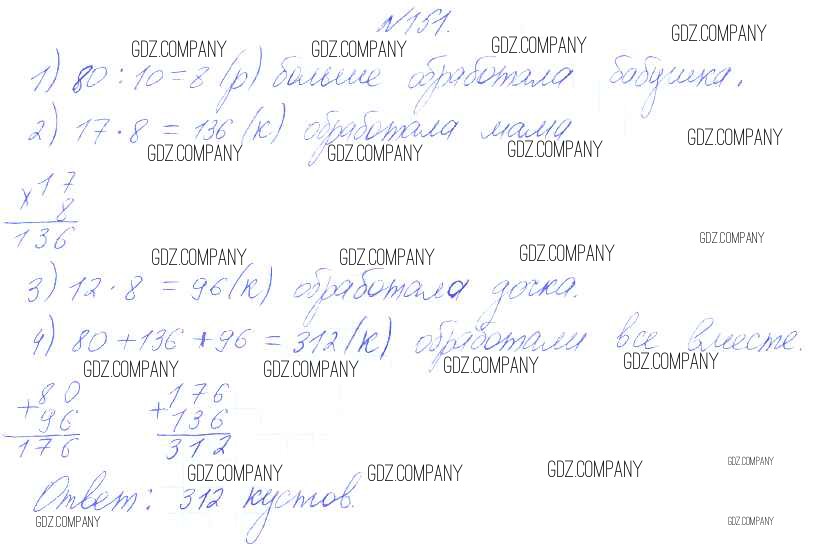 №151.
GDZ.COMPANY GDZ.COMPANY GDZ.COMPANY GDZ.COMPANY
1) 80 : 10 = 8 (р) больше обработала бабушка.
2) 17 · 8 = 136 (к) обработала мама
GDZ.COMPANY GDZ.COMPANY GDZ.COMPANY GDZ.COMPANY
× 17
8
136
GDZ.COMPANY GDZ.COMPANY GDZ.COMPANY GDZ.COMPANY
3) 12 · 8 = 96 (к) обработала дочка.
4) 80 + 136 + 96 = 312 (к) обработали все вместе.
GDZ.COMPANY GDZ.COMPANY GDZ.COMPANY GDZ.COMPANY
+ 80 + 176
96 136
176 312
GDZ.COMPANY GDZ.COMPANY GDZ.COMPANY GDZ.COMPANY
Ответ: 312 кустов.
GDZ.COMPANY GDZ.COMPANY